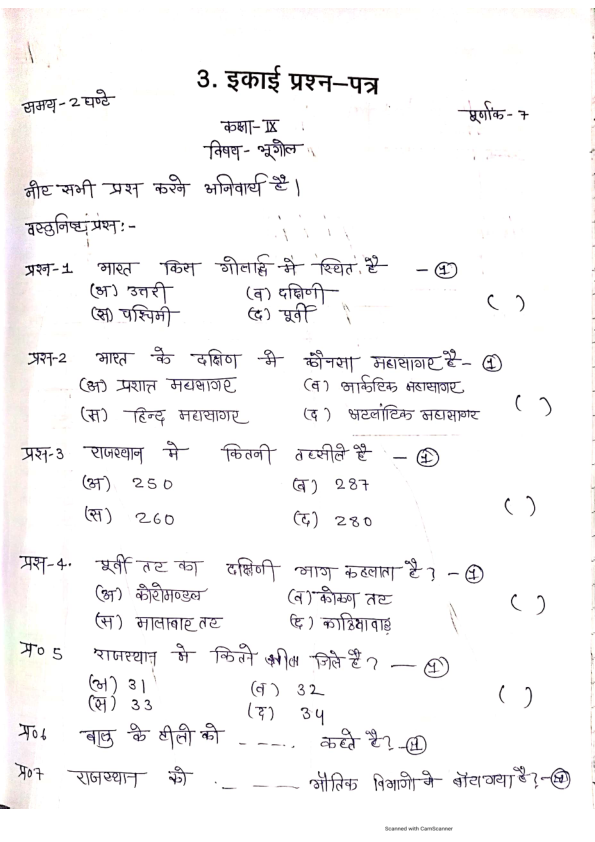 3. इकाई प्रश्न–पत्र
समय - 2 घण्टे
पूर्णांक - 7
कक्षा - IX
विषय - भूगोल
नोट सभी प्रश्न करने अनिवार्य है।
वस्तुनिष्ठ प्रश्न :-
प्रश्न-1 भारत किस गोलार्द्ध मे स्थित है - (1)
(अ) उत्तरी (ब) दक्षिणी
(स) पश्चिमी (द) पूर्वी ( )
प्रश्न-2 भारत के दक्षिण मे कौनसा महासागर है - (1)
(अ) प्रशान्त महासागर (ब) आर्कटिक महासागर
(स) हिन्द महासागर (द) अटलांटिक महासागर ( )
प्रश्न-3 राजस्थान मे कितनी तहसीले है - (1)
(अ) 250 (ब) 287
(स) 260 (द) 280 ( )
प्रश्न-4. पूर्वी तट का दक्षिणी भाग कहलाता है ? - (1)
(अ) कोरोमण्डल (ब) कोकण तट ( )
(स) मालाबार तट (द) काठियावाड़
प्र० 5 राजस्थान मे कितने जिले है ? - (1)
(अ) 31 (ब) 32 ( )
(स) 33 (द) 34
प्र०6 बालु के टीलो को - - - - . कहते है ? - (1)
प्र०7 राजस्थान को . - - - भौतिक विभागो मे बाँटा गया है ? - (1)
Scanned with CamScanner